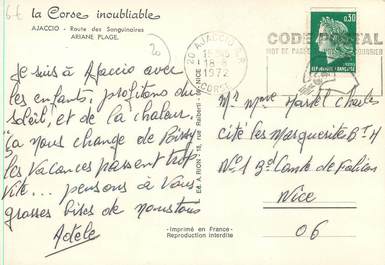 6f
la Corse inoubliable
AJACCIO - Route des Sanguinaires
ARIANE PLAGE.
20
Je suis à Ajaccio avec
les enfants, profitons du
soleil, et de la chaleur.
ça nous change de
les vacances passent trop
vite... pensons à Vous
grosses bises de nous tous
Adèle
Ed. A. RION - 18, rue Raiberti - NICE
- Imprimé en France -
Reproduction interdite
20 AJACCIO R.P.
18-8
1972
CORSE
CODE POSTAL
MOT DE PASSE
0,30
REPUBLIQUE FRANÇAISE
Mr Mme Martel Charles
cité les Marguerite B
N°1 Bd Comte de Falicon
Nice
06